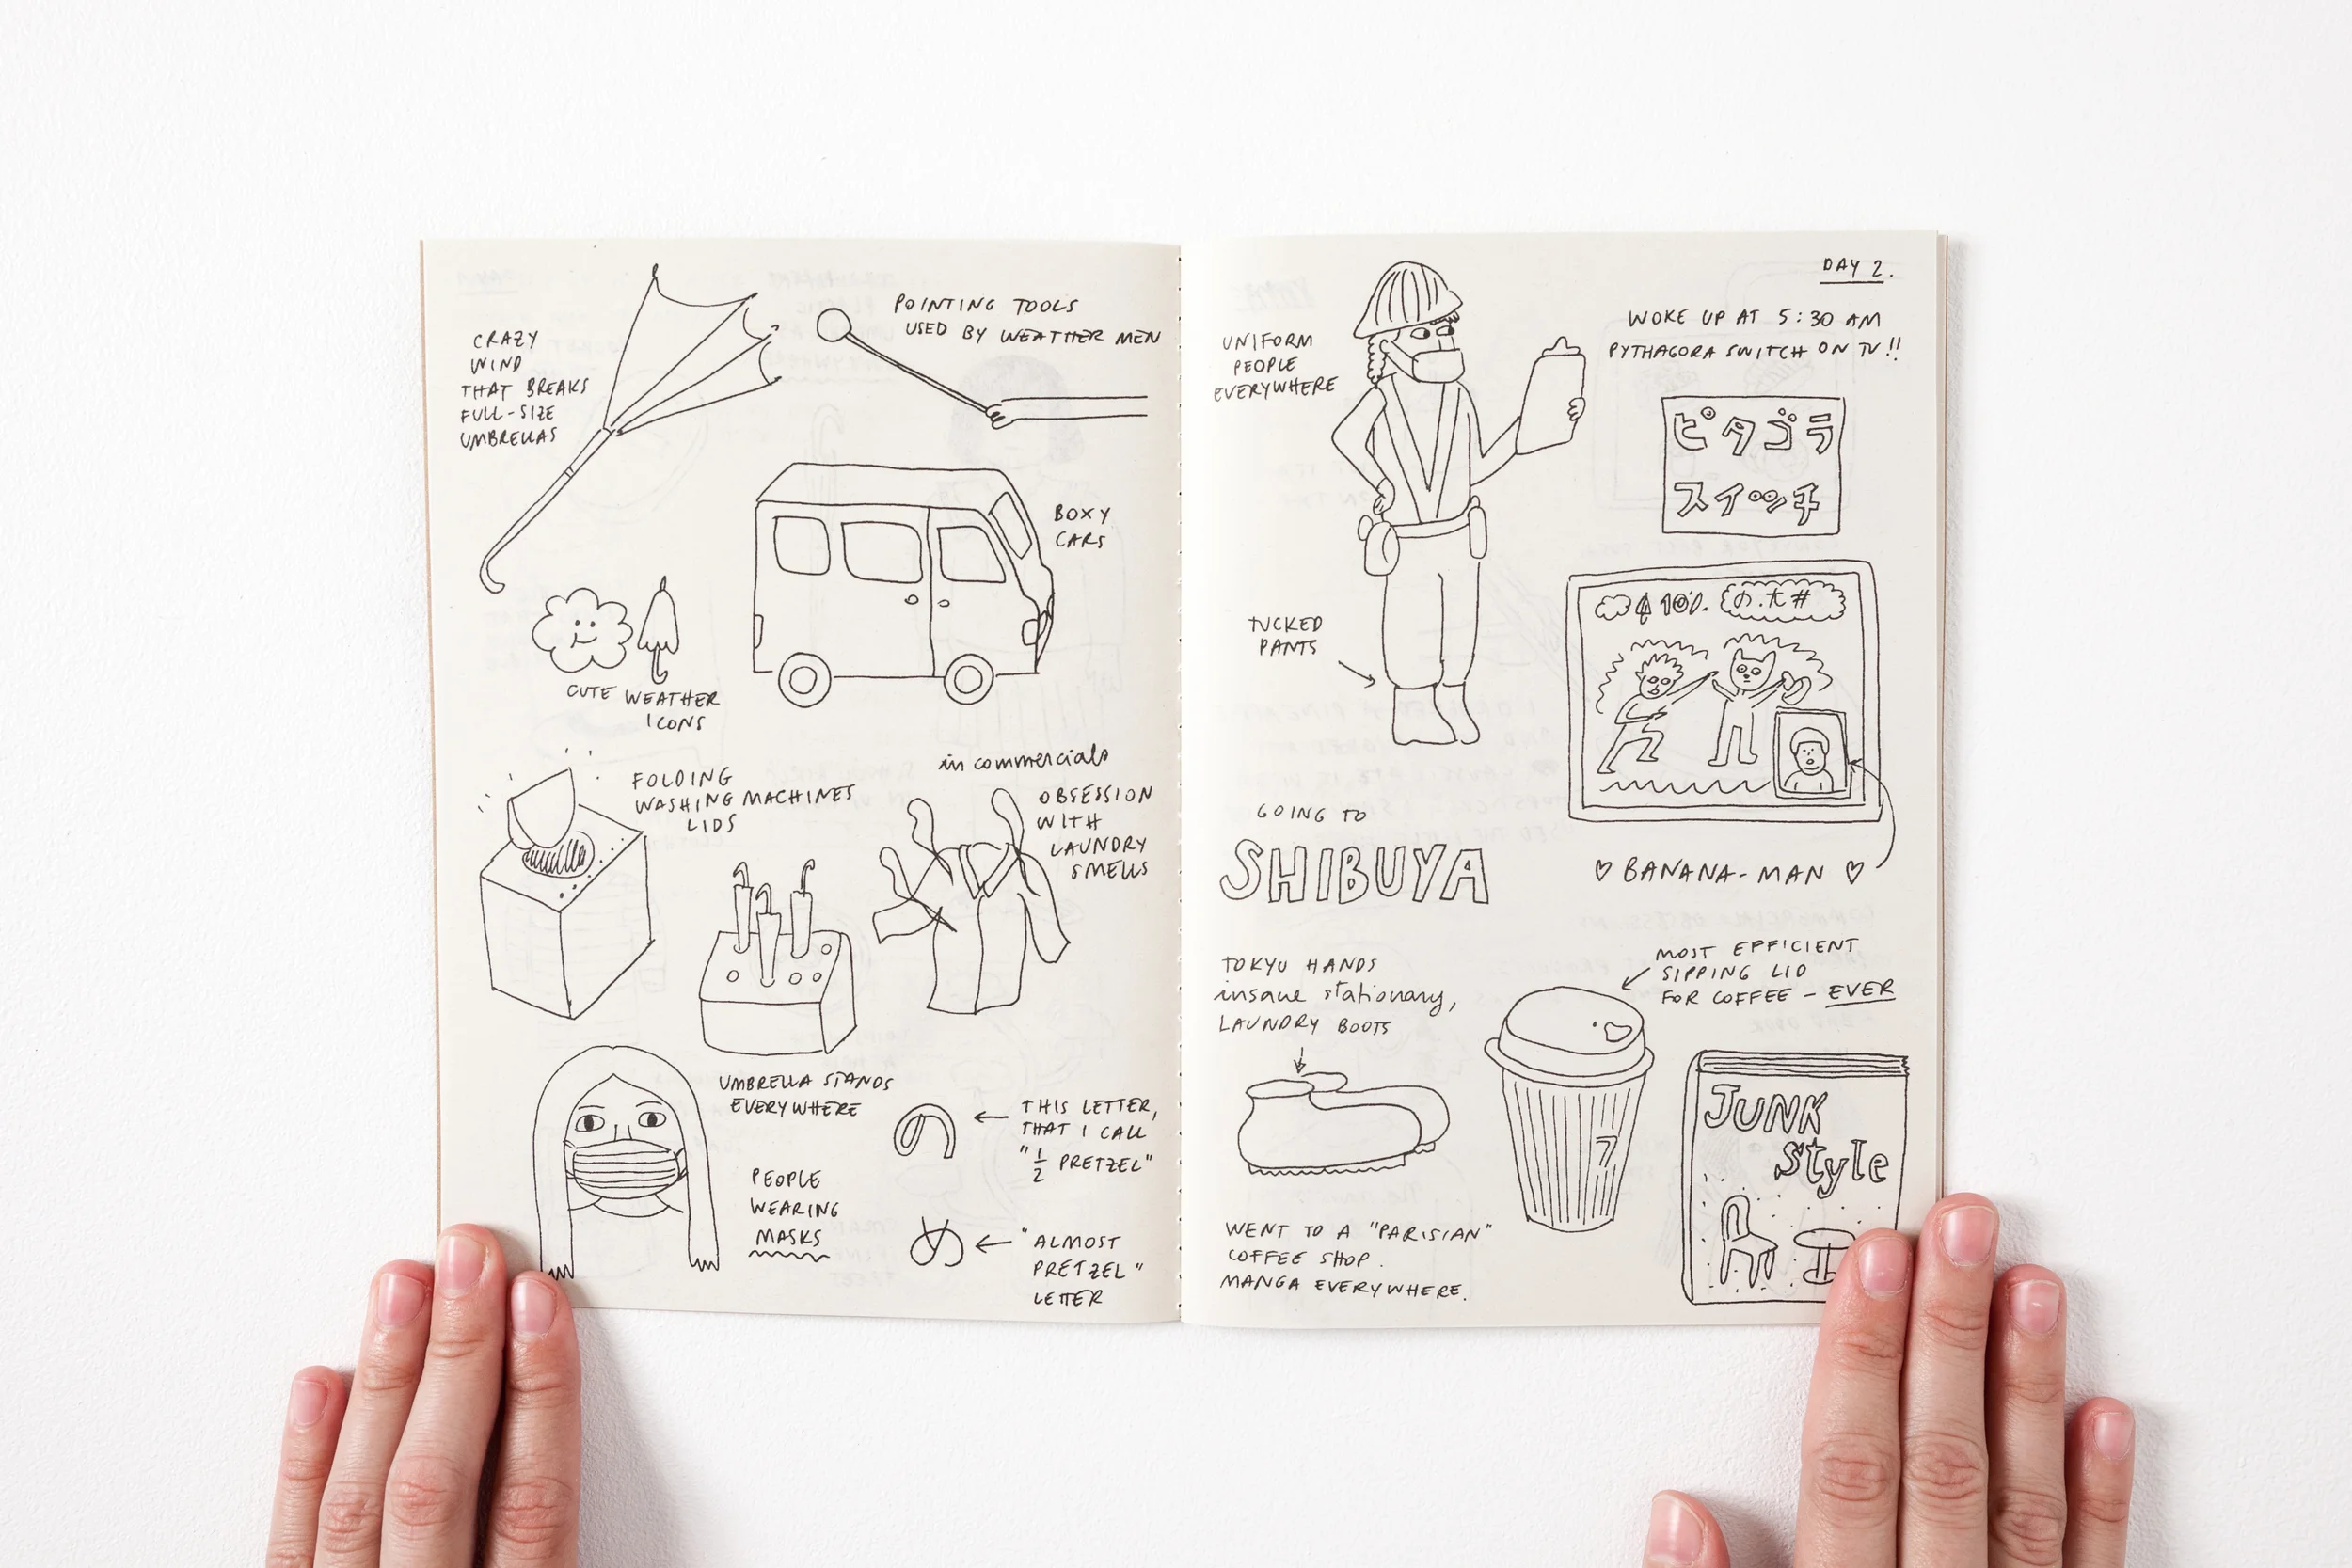 CRAZY
WIND
THAT BREAKS
FULL-SIZE
UMBRELLAS
POINTING TOOLS
USED BY WEATHER MEN
BOXY
CARS
CUTE WEATHER
ICONS
FOLDING
WASHING MACHINES
LIDS
in commercials
OBSESSION
WITH
LAUNDRY
SMELLS
UMBRELLA STANDS
EVERYWHERE
PEOPLE
WEARING
MASKS
THIS LETTER,
THAT I CALL
"½ PRETZEL"
"ALMOST
PRETZEL"
LETTER
DAY 2.
UNIFORM
PEOPLE
EVERYWHERE
WOKE UP AT 5:30 AM
PYTHAGORA SWITCH ON TV!!
ピタゴラ
スイッチ
TUCKED
PANTS
10%.
♡ BANANA-MAN ♡
GOING TO
SHIBUYA
TOKYU HANDS
insane stationary,
LAUNDRY BOOTS
MOST EFFICIENT
SIPPING LID
FOR COFFEE - EVER
7
JUNK
Style
WENT TO A "PARISIAN"
COFFEE SHOP.
MANGA EVERYWHERE.